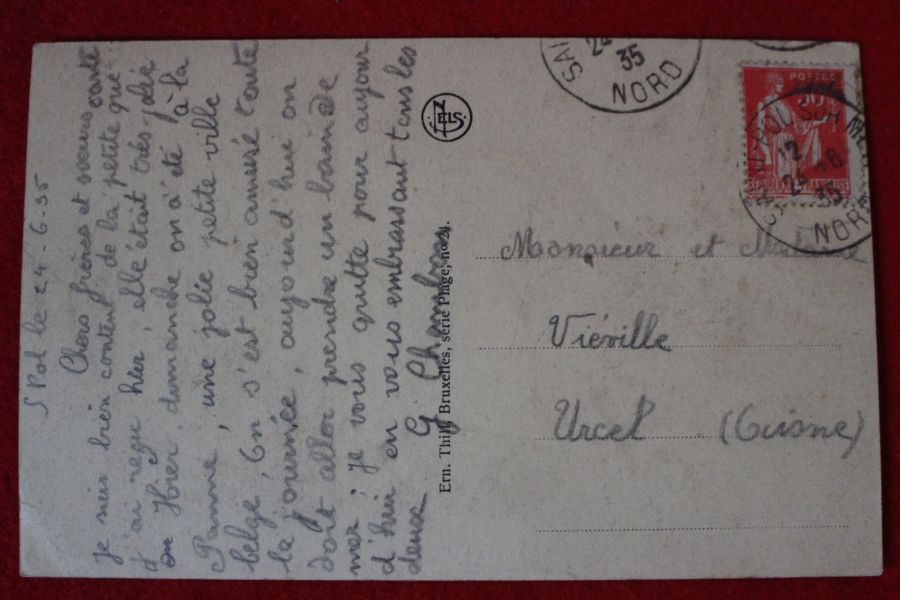 S Pol le 24-6-35
Chers frères et soeurs cart
Je suis bien content de la petite que
j'ai reçu hier, elle était très jolie
on Hier dimanche on a été à la
Panne, une jolie petite ville
belge, on s'est bien amusé toute
la journée, aujourd'hui on
doit aller prendre un bain de
mer, je vous quitte pour aujour
d'hui en vous embrassant tous les
deux
G Chambre
Ern. Thill, Bruxelles, série Plage, no 24.
NELS
Monsieur et Madame
Viéville
Urcel (Aisne)
24
35
NORD
POSTES
50
REPUBLIQUE FRANÇAISE
ST POL SUR MER
12
24-6
35
NORD